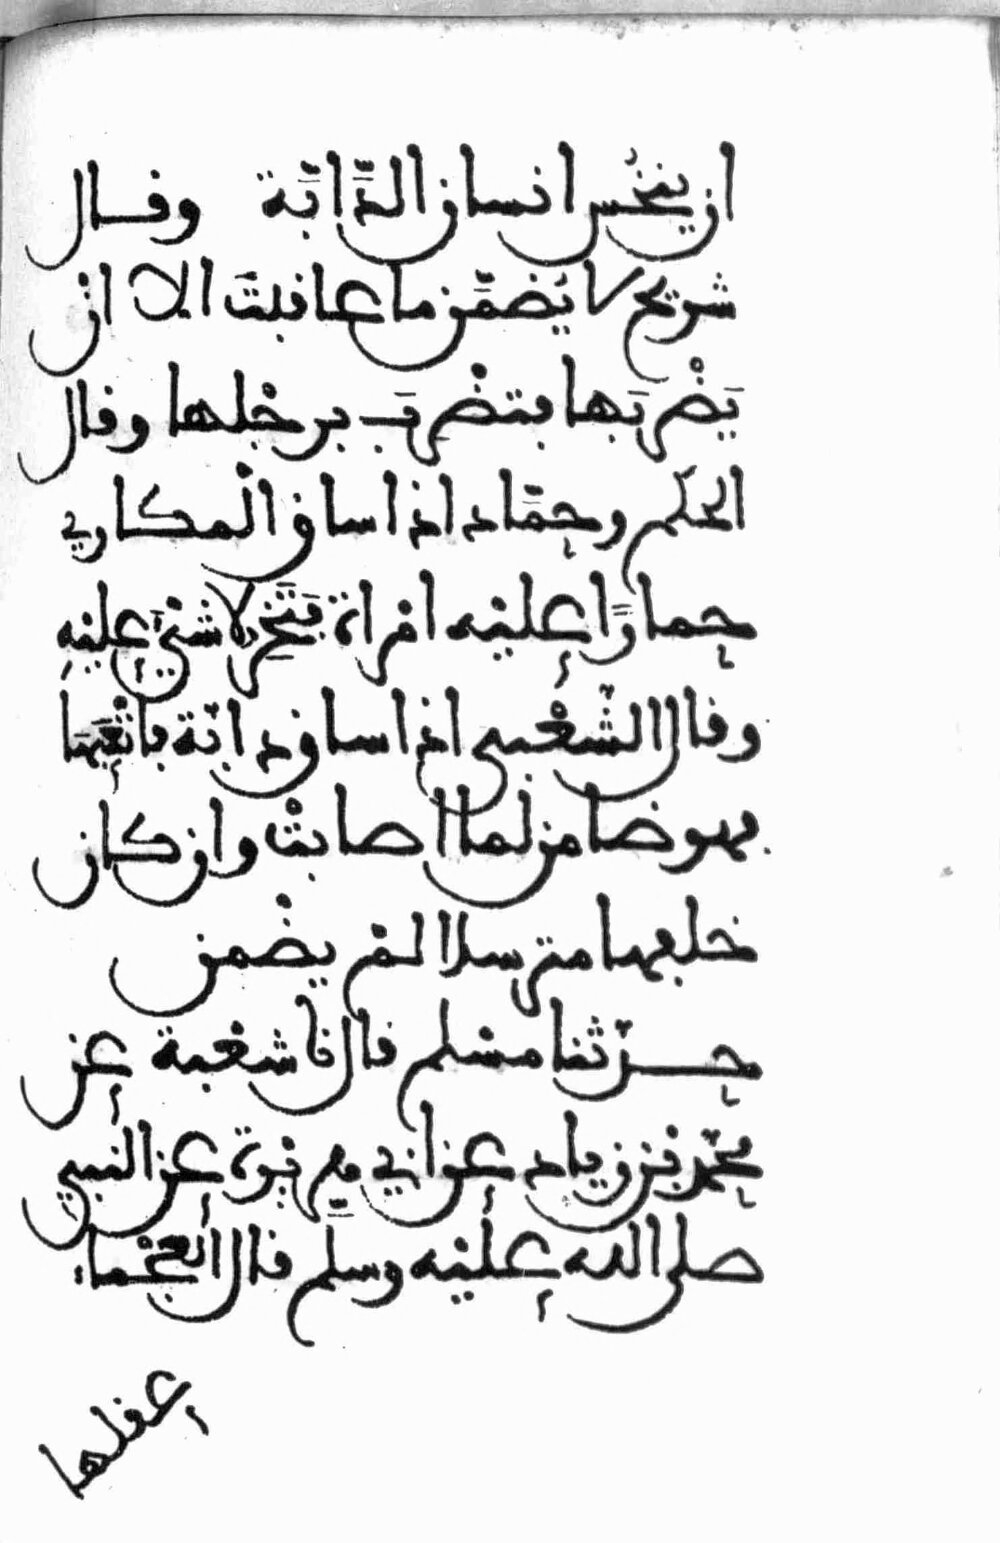 ان ينخس انسان الدَّابَّة وقال
شريح لا يُضمَّن ما عاقبت الا ان
يَضْرِبَها فتضْرِبَ برجْلها وقال
الحكَم وحمَّاد اذا ساق الْمكاري
حمارًا عليْه امْراة فتَخِرّ لا شيْءَ عليْهِ
وقال الشّعْبي اذا ساق دابّة فاتْعَبَهَا
فهو ضامن لما اصابتْ وان كان
خلفها مترسلا لمْ يضْمن
حدّثنا مسْلم قال نا شعْبة عن
محمّد بْن زياد عن ابي هريْرة عن النبي
صلى الله عليْه وسلّم قال العجْماء
عقلها